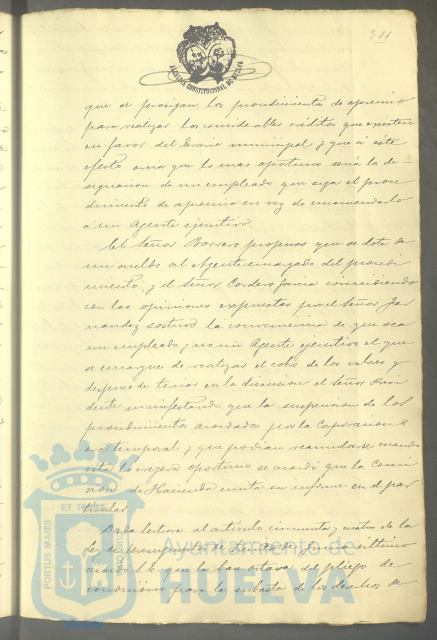 311
ALCALDIA CONSTITUCIONAL DE HUELVA
que se prosigan los procedimientos de apremio
para realizar los considerables créditos que existen
en favor del Erario municipal y que á este
efecto creia que lo mas oportuno seria la de-
signacion de un empleado que siga el proce-
dimiento de apremio en vez de encomendarlo
á un Agente ejecutivo.
El Señor Borrero propuso que se dote de
un sueldo al Agente encargado del procedi-
miento, y el Señor Cordero García coincidiendo
con las opiniones expuestas por el Señor Fer-
nandez sostuvo la conveniencia de que sea
un empleado y no un Agente ejecutivo el que
se encargue de realizar el cobro de los valores y
despues de terciar en la discusion el Señor Presi-
dente manifestando que la suspension de los
procedimientos acordada por la Corporacion
era temporal y que podian reanudarse cuando
esta lo creyera oportuno se acordó que la Comi-
sion de Hacienda emita su informe en el par-
ticular
Dada lectura al artículo cincuenta y cuatro de la
ley de presupuestos de treinta de Junio último
acordó S.E. que la base octava del pliego de
condiciones para la subasta de los derechos de
Ayuntamiento de
HUELVA
PORTUS MARIS
ET TERRE